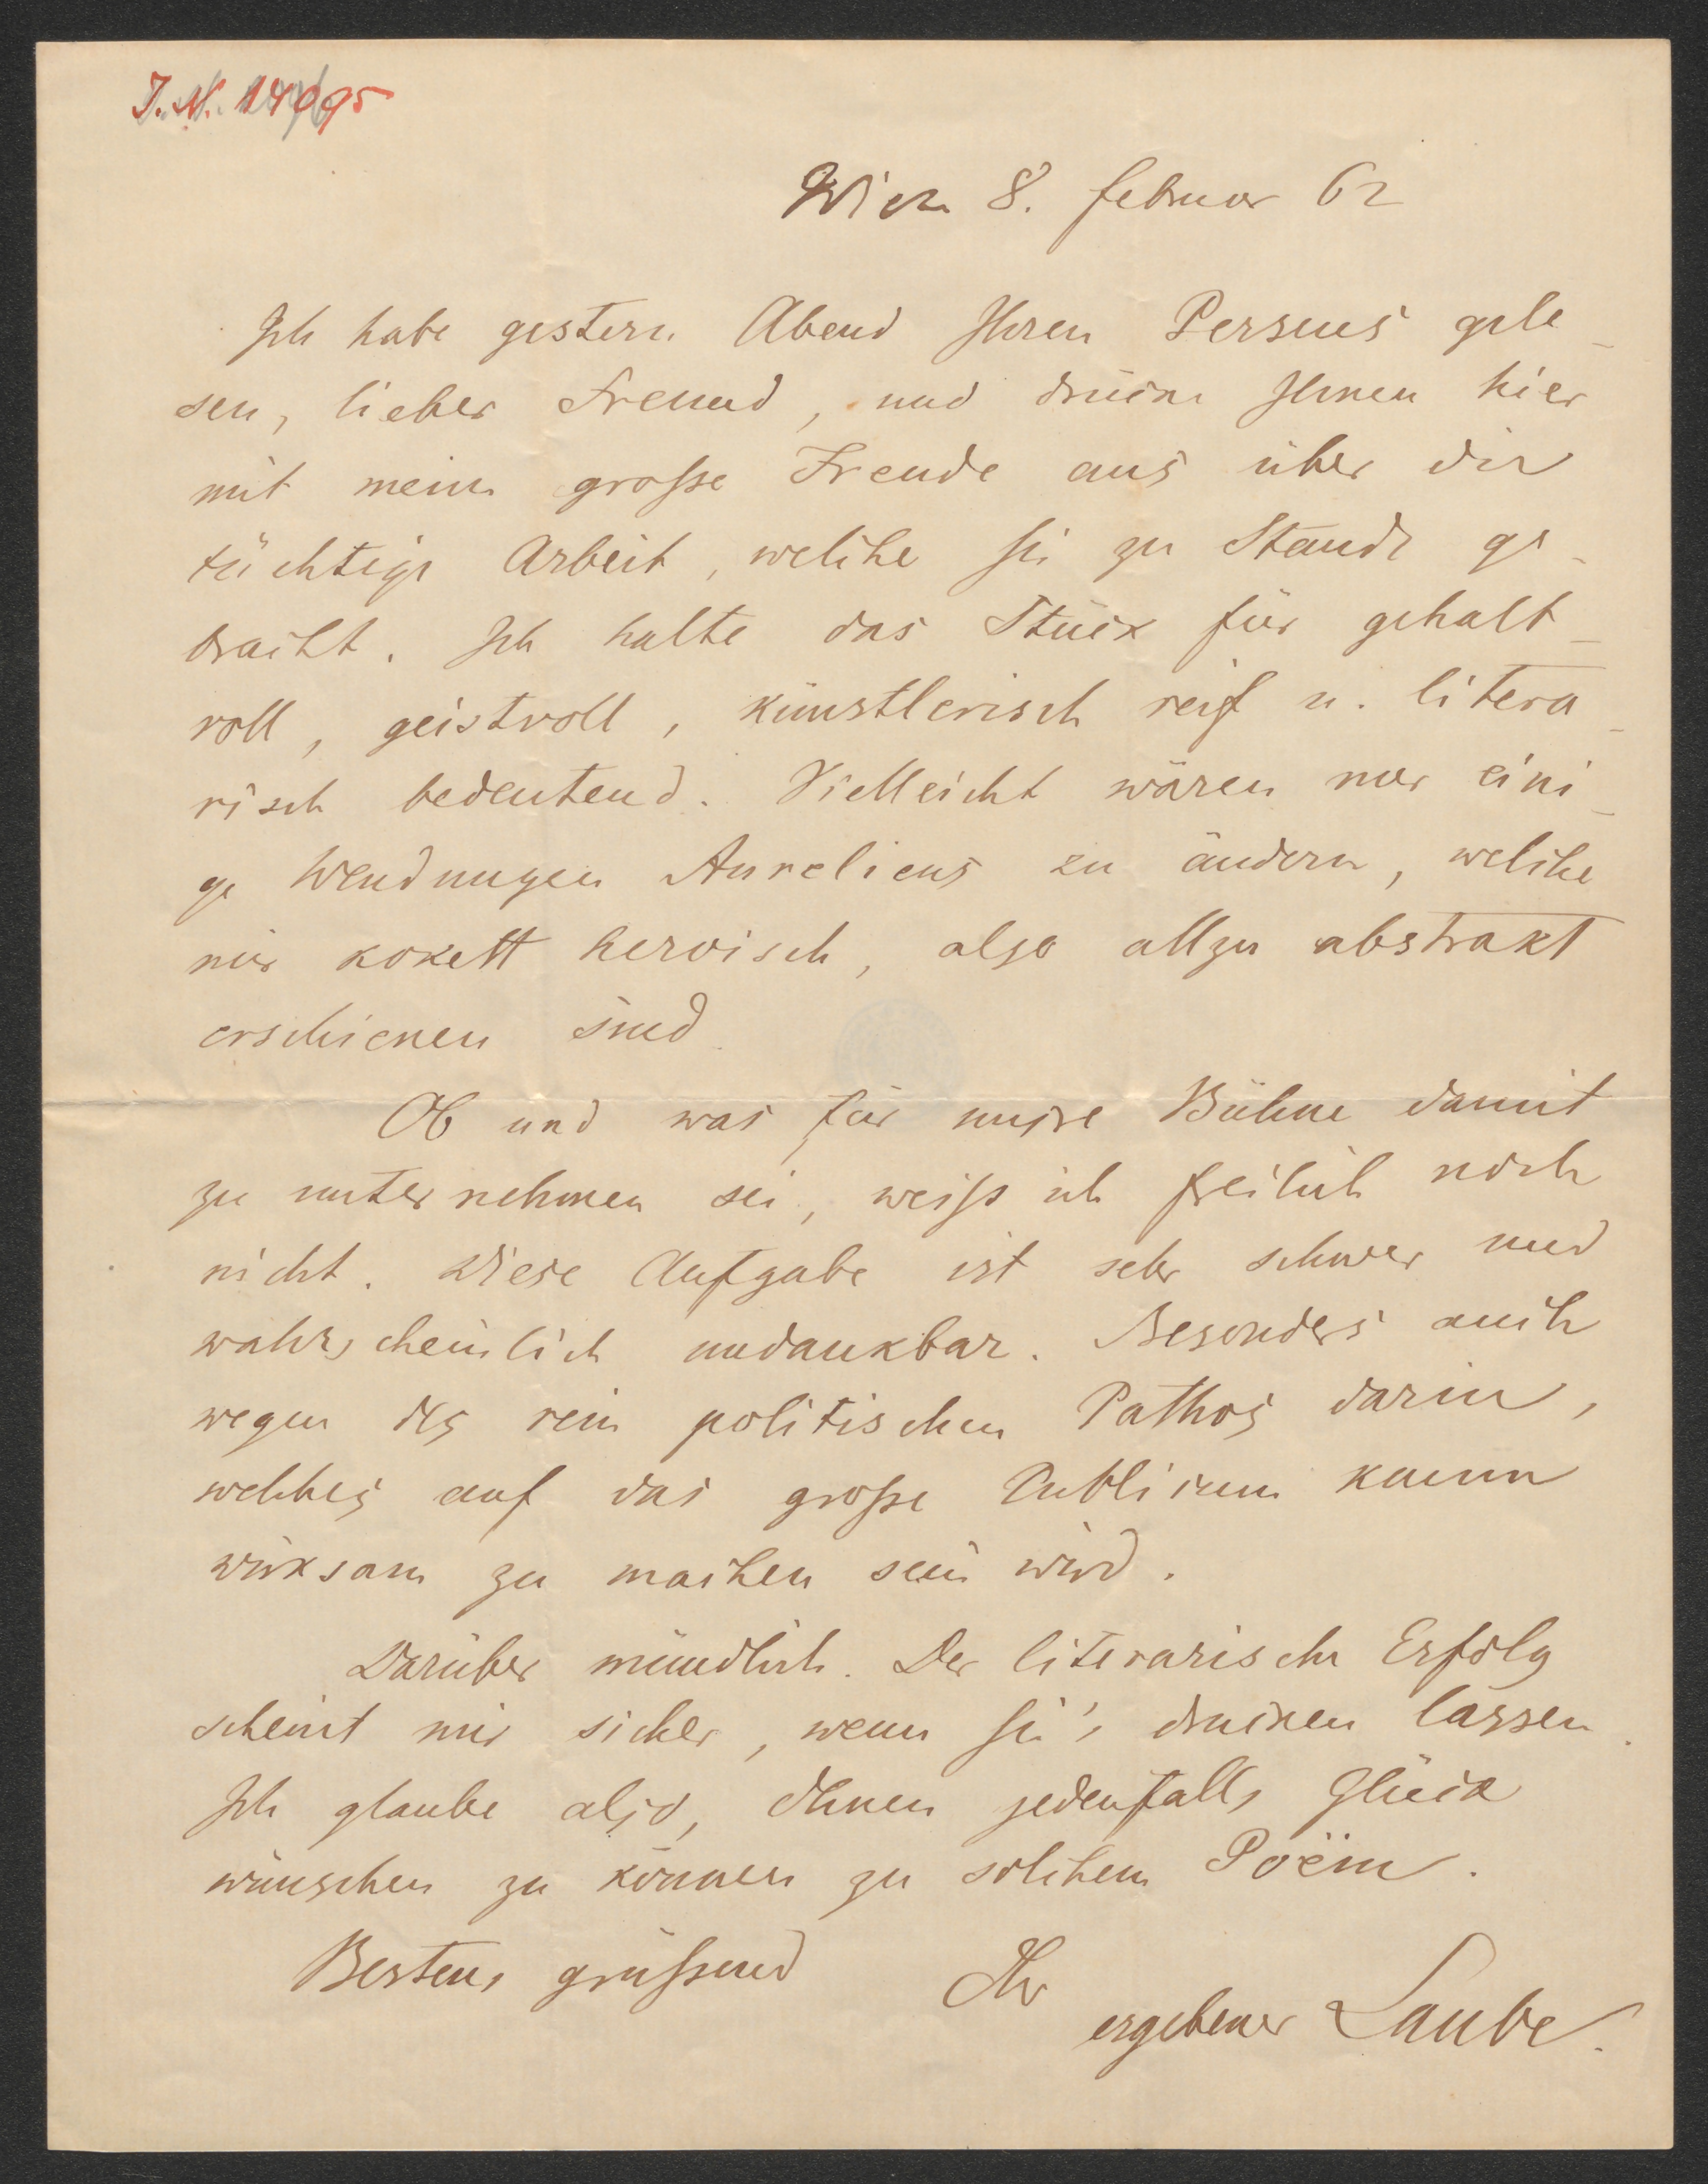 J. N. 14095
Wien 8. Februar 62
Ich habe gestern Abend Ihren Perseus gele-
sen, lieber Freund, und drücke Ihnen hier
mit meine große Freude aus über die
tüchtige Arbeit, welche Sie zu Stande ge-
bracht. Ich halte das Stück für gehalt-
voll, geistvoll, künstlerisch reif u. litera-
risch bedeutend. Vielleicht wären nur eini-
ge Wendungen Aureliens zu ändern, welche
mir kokett heroisch, also allzu abstrakt
erschienen sind.
Ob und was für unsre Bühne damit
zu unternehmen sei, weiß ich freilich noch
nicht. Diese Aufgabe ist sehr schwer und
wahrscheinlich undankbar. Besonders auch
wegen des rein politischen Pathos darin,
welches auf das große Publicum kaum
wirksam zu machen sein wird.
Darüber mündlich. Der literarische Erfolg
scheint mir sicher, wenn Sie's drucken lassen.
Ich glaube also, Ihnen jedenfalls Glück
wünschen zu können zu solchem Poëm.
Bestens grüßend Ihr
ergebener Laube.